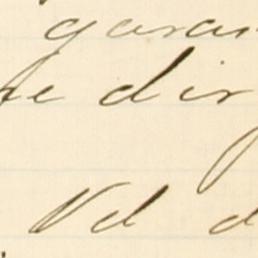 garan
e dir
Vd d